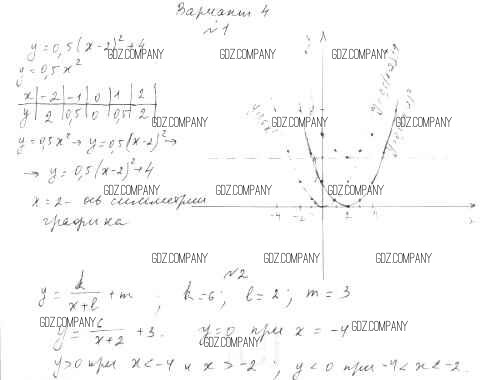 Вариант 4
№1
y = 0,5(x-2)² + 4
y = 0,5x²
x | -2 | -1 | 0 | 1 | 2
y | 2 | 0,5 | 0 | 0,5 | 2
y = 0,5x² → y = 0,5(x-2)² →
→ y = 0,5(x-2)² + 4
x = 2 - ось симметрии
графика
№2
y = k/(x+l) + m ; k = 6; l = 2; m = 3
y = 6/(x+2) + 3. y = 0 при x = -4
y > 0 при x < -4 и x > -2 ; y < 0 при -4 < x < -2.
GDZ.COMPANY GDZ.COMPANY GDZ.COMPANY
GDZ.COMPANY GDZ.COMPANY GDZ.COMPANY
GDZ.COMPANY GDZ.COMPANY GDZ.COMPANY
GDZ.COMPANY GDZ.COMPANY GDZ.COMPANY
GDZ.COMPANY GDZ.COMPANY
GDZ.COMPANY GDZ.COMPANY GDZ.COMPANY